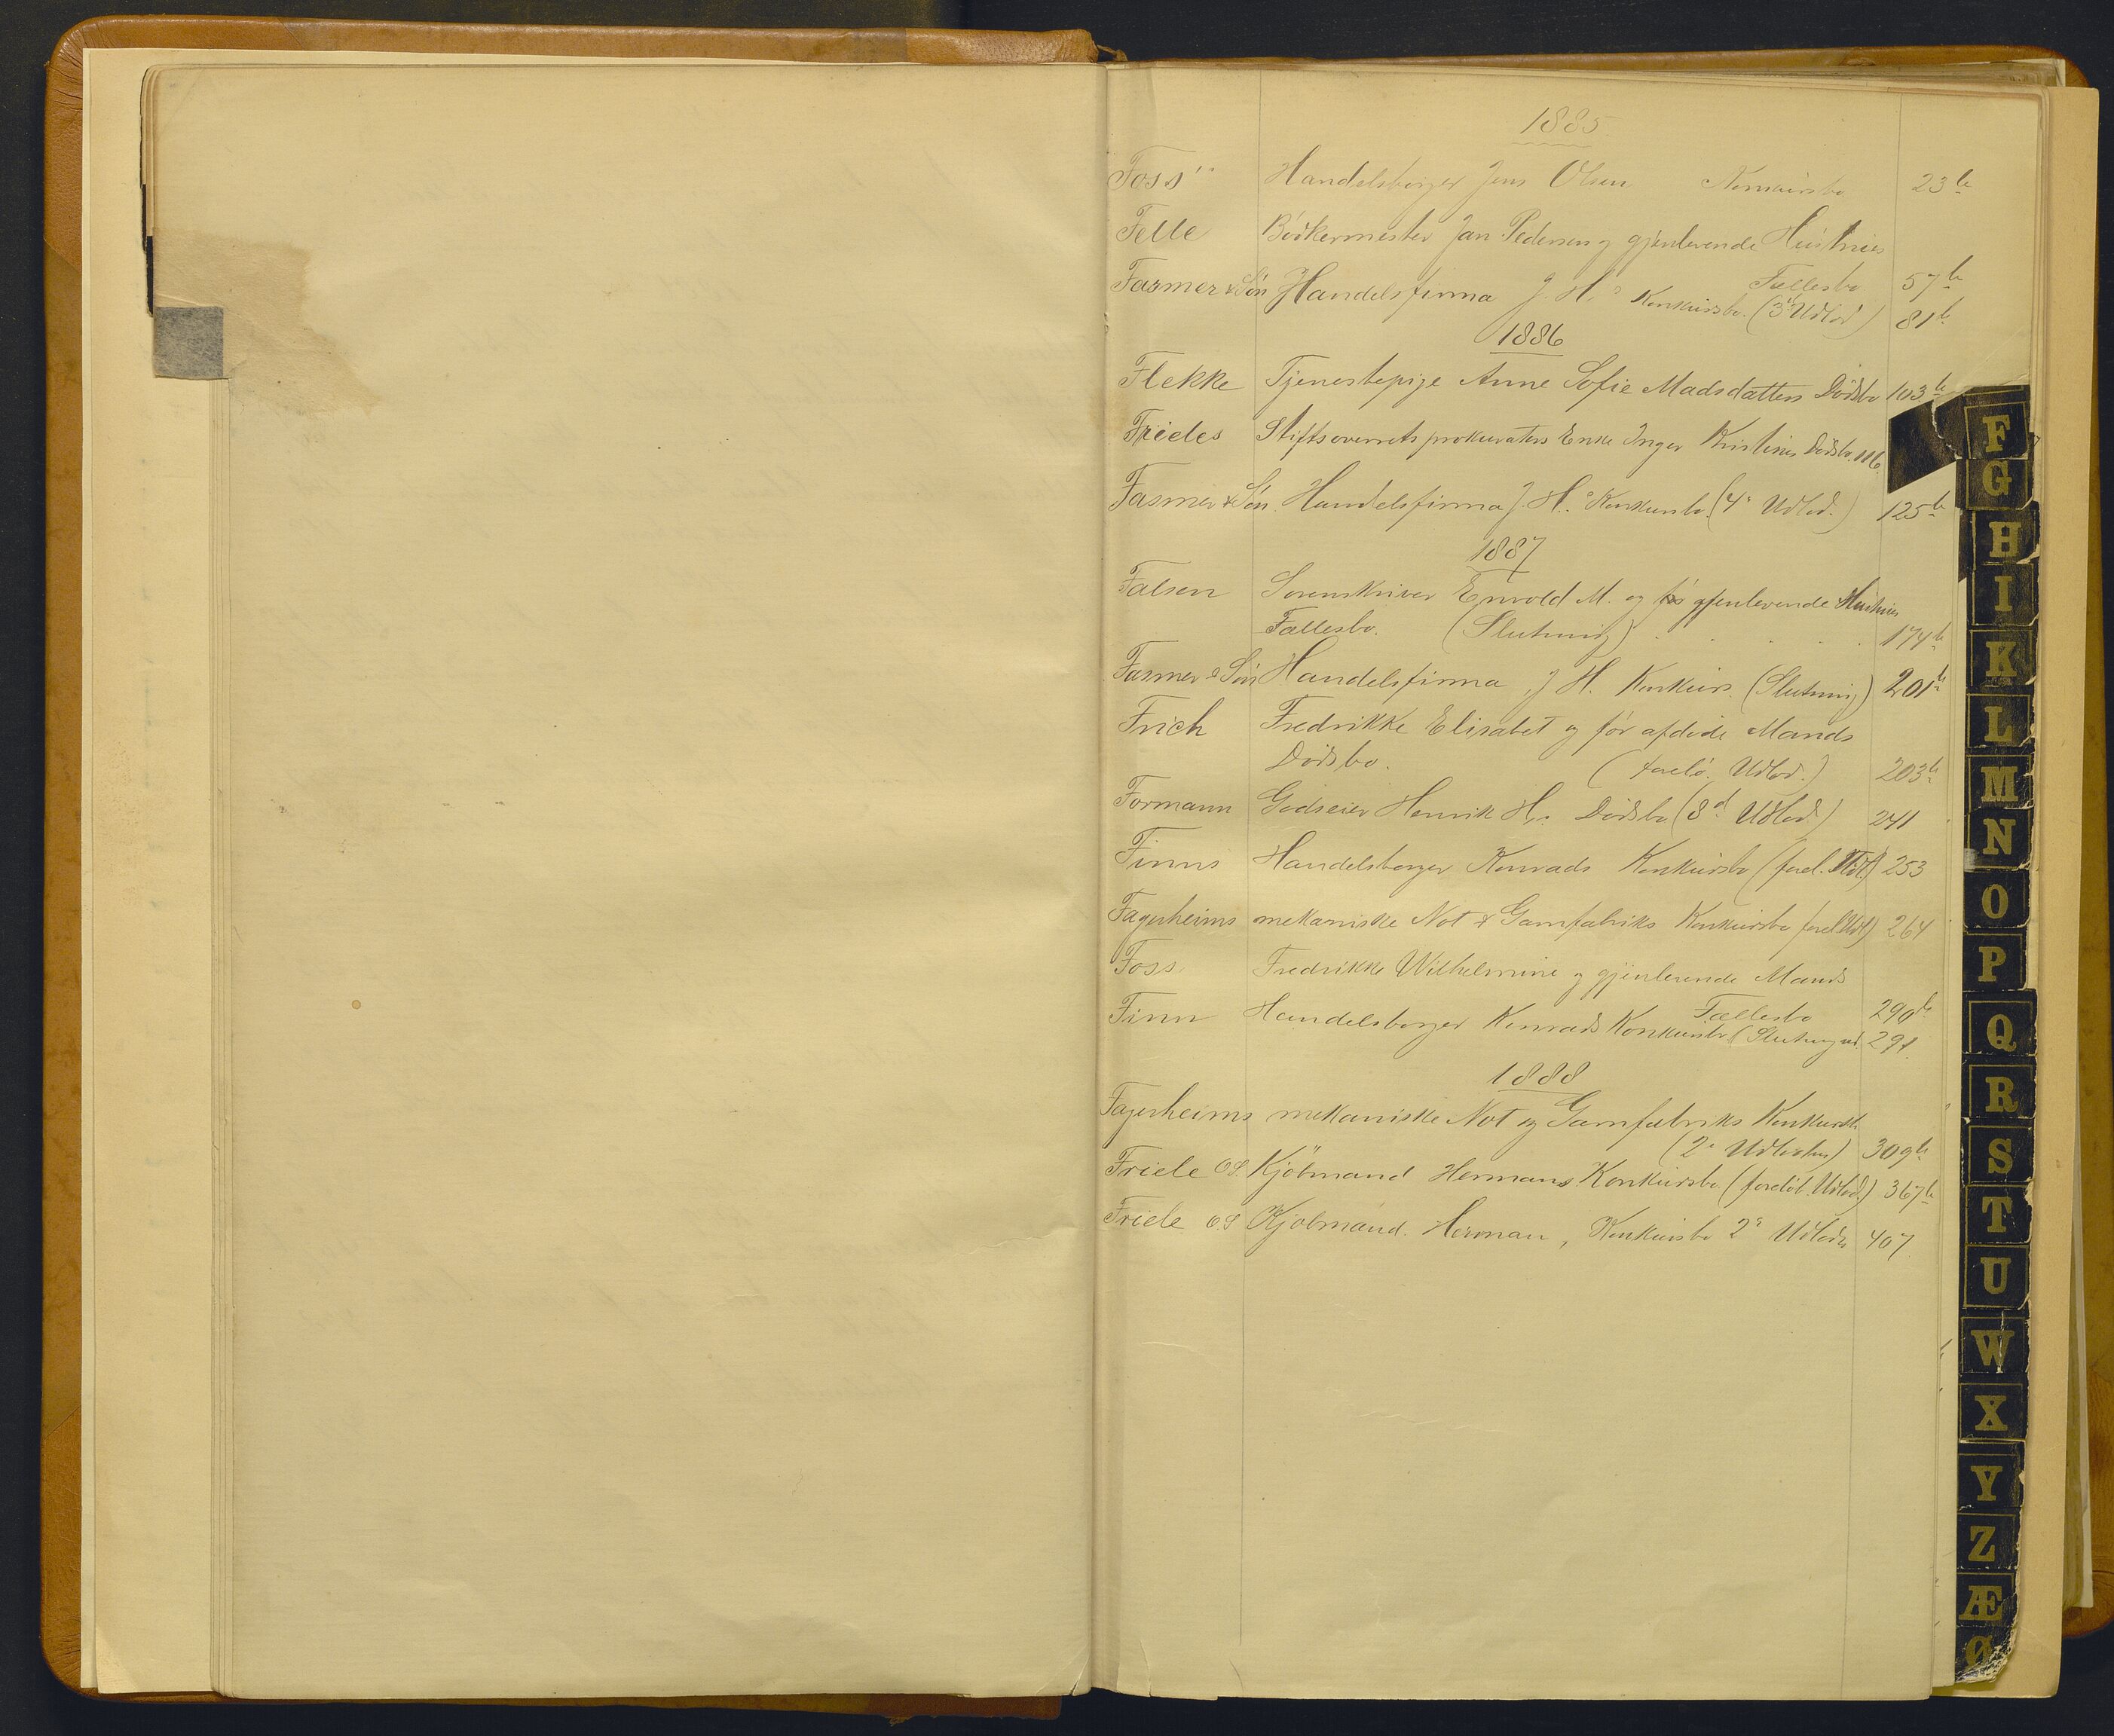 1885
Foss Handelsborger Jens Olsen Konkursbo 23 b
Felle Bødkermester Jan Pedersen og gjenlevende Hustrues
Fællesbo 57 b
Fasmer & Søn Handelsfirma J. H. s Konkursbo. (3' Udlod) 81 b
1886
Flekke Tjenestepige Anne Sofie Madsdatters Dødsbo 103 b
Frieles Stiftsoverretsprokurators Enke Inger Kristines Dødsbo 116
Fasmer & Søn. Handelsfirma J. H. s Konkursbo. (4' Udlod.) 125 b
1887
Falsen Sorenskriver Envold M. og gjenlevende Hustrues
Fællesbo. (Slutning) 174 b
Fasmer & Søn Handelsfirma J. H. Konkurs. (Slutning) 201 b
Frich Fredrikke Elisabet og før afdøde Mands
Dødsbo. (forelø. Udlod.) 203 b
Formann Godseier Henrik H.s Dødsbo (8d Udlod) 241
Finns Handelsborger Konrads Konkursbo (forel. Udl) 253
Fagerheims mekaniske Not & Garnfabriks Konkursbo forel Udl) 264
Foss Fredrikke Wilhelmine og gjenlevende Mands
Fællesbo 290 b
Finn Handelsborger Konrads Konkursbo (Slutning ud. 291
1888
Fagerheims mekaniske Not og Garnfabriks Konkursb
(2' Udlodn) 309 b
Friele O.S. Kjøbmand Hermans Konkursbo (foreløb. Udlod.) 367 b
Friele O.S Kjøbmand. Herman, Konkursbo 2' Udlodn 407
F
G
H
I
K
L
M
N
O
P
Q
R
S
T
U
W
X
Y
Z
Æ
Ø